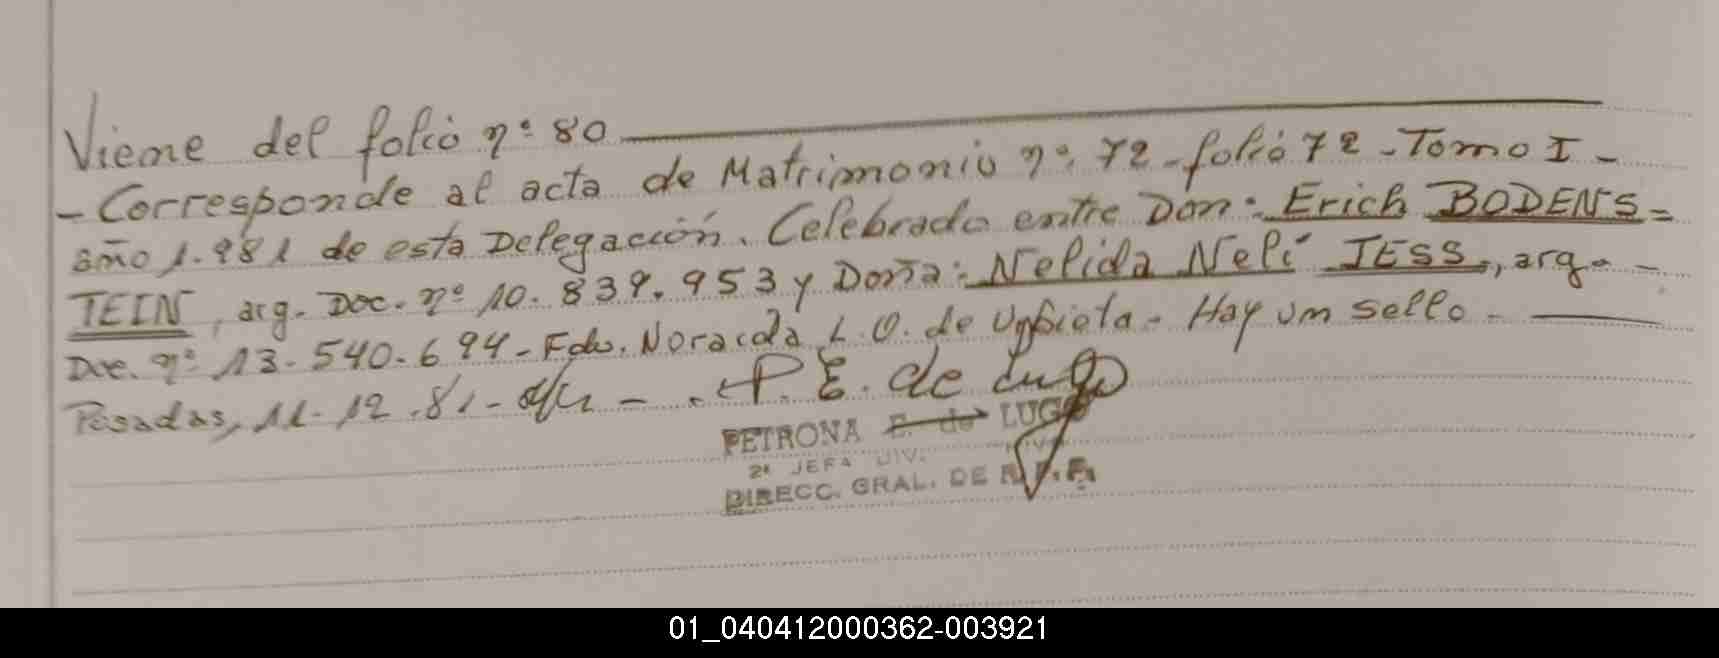 Viene del folio nº 80
- Corresponde al acta de Matrimonio nº 72 - folio 72 - Tomo I -
año 1.981 de esta Delegación. Celebrado entre Don: Erich BODENS=
TEIN, arg. Doc. nº 10.839.953 y Doña: Nelida Neli JESS, arg. -
Doc. nº 13.540.694 - Fdo. L. O. de - Hay un sello -
Posadas, 11-12.81- - . P. E. de Lugo
PETRONA E. de LUGO
2ª JEFA DIV.
DIRECC. GRAL. DE R. P. P.
01_040412000362-003921